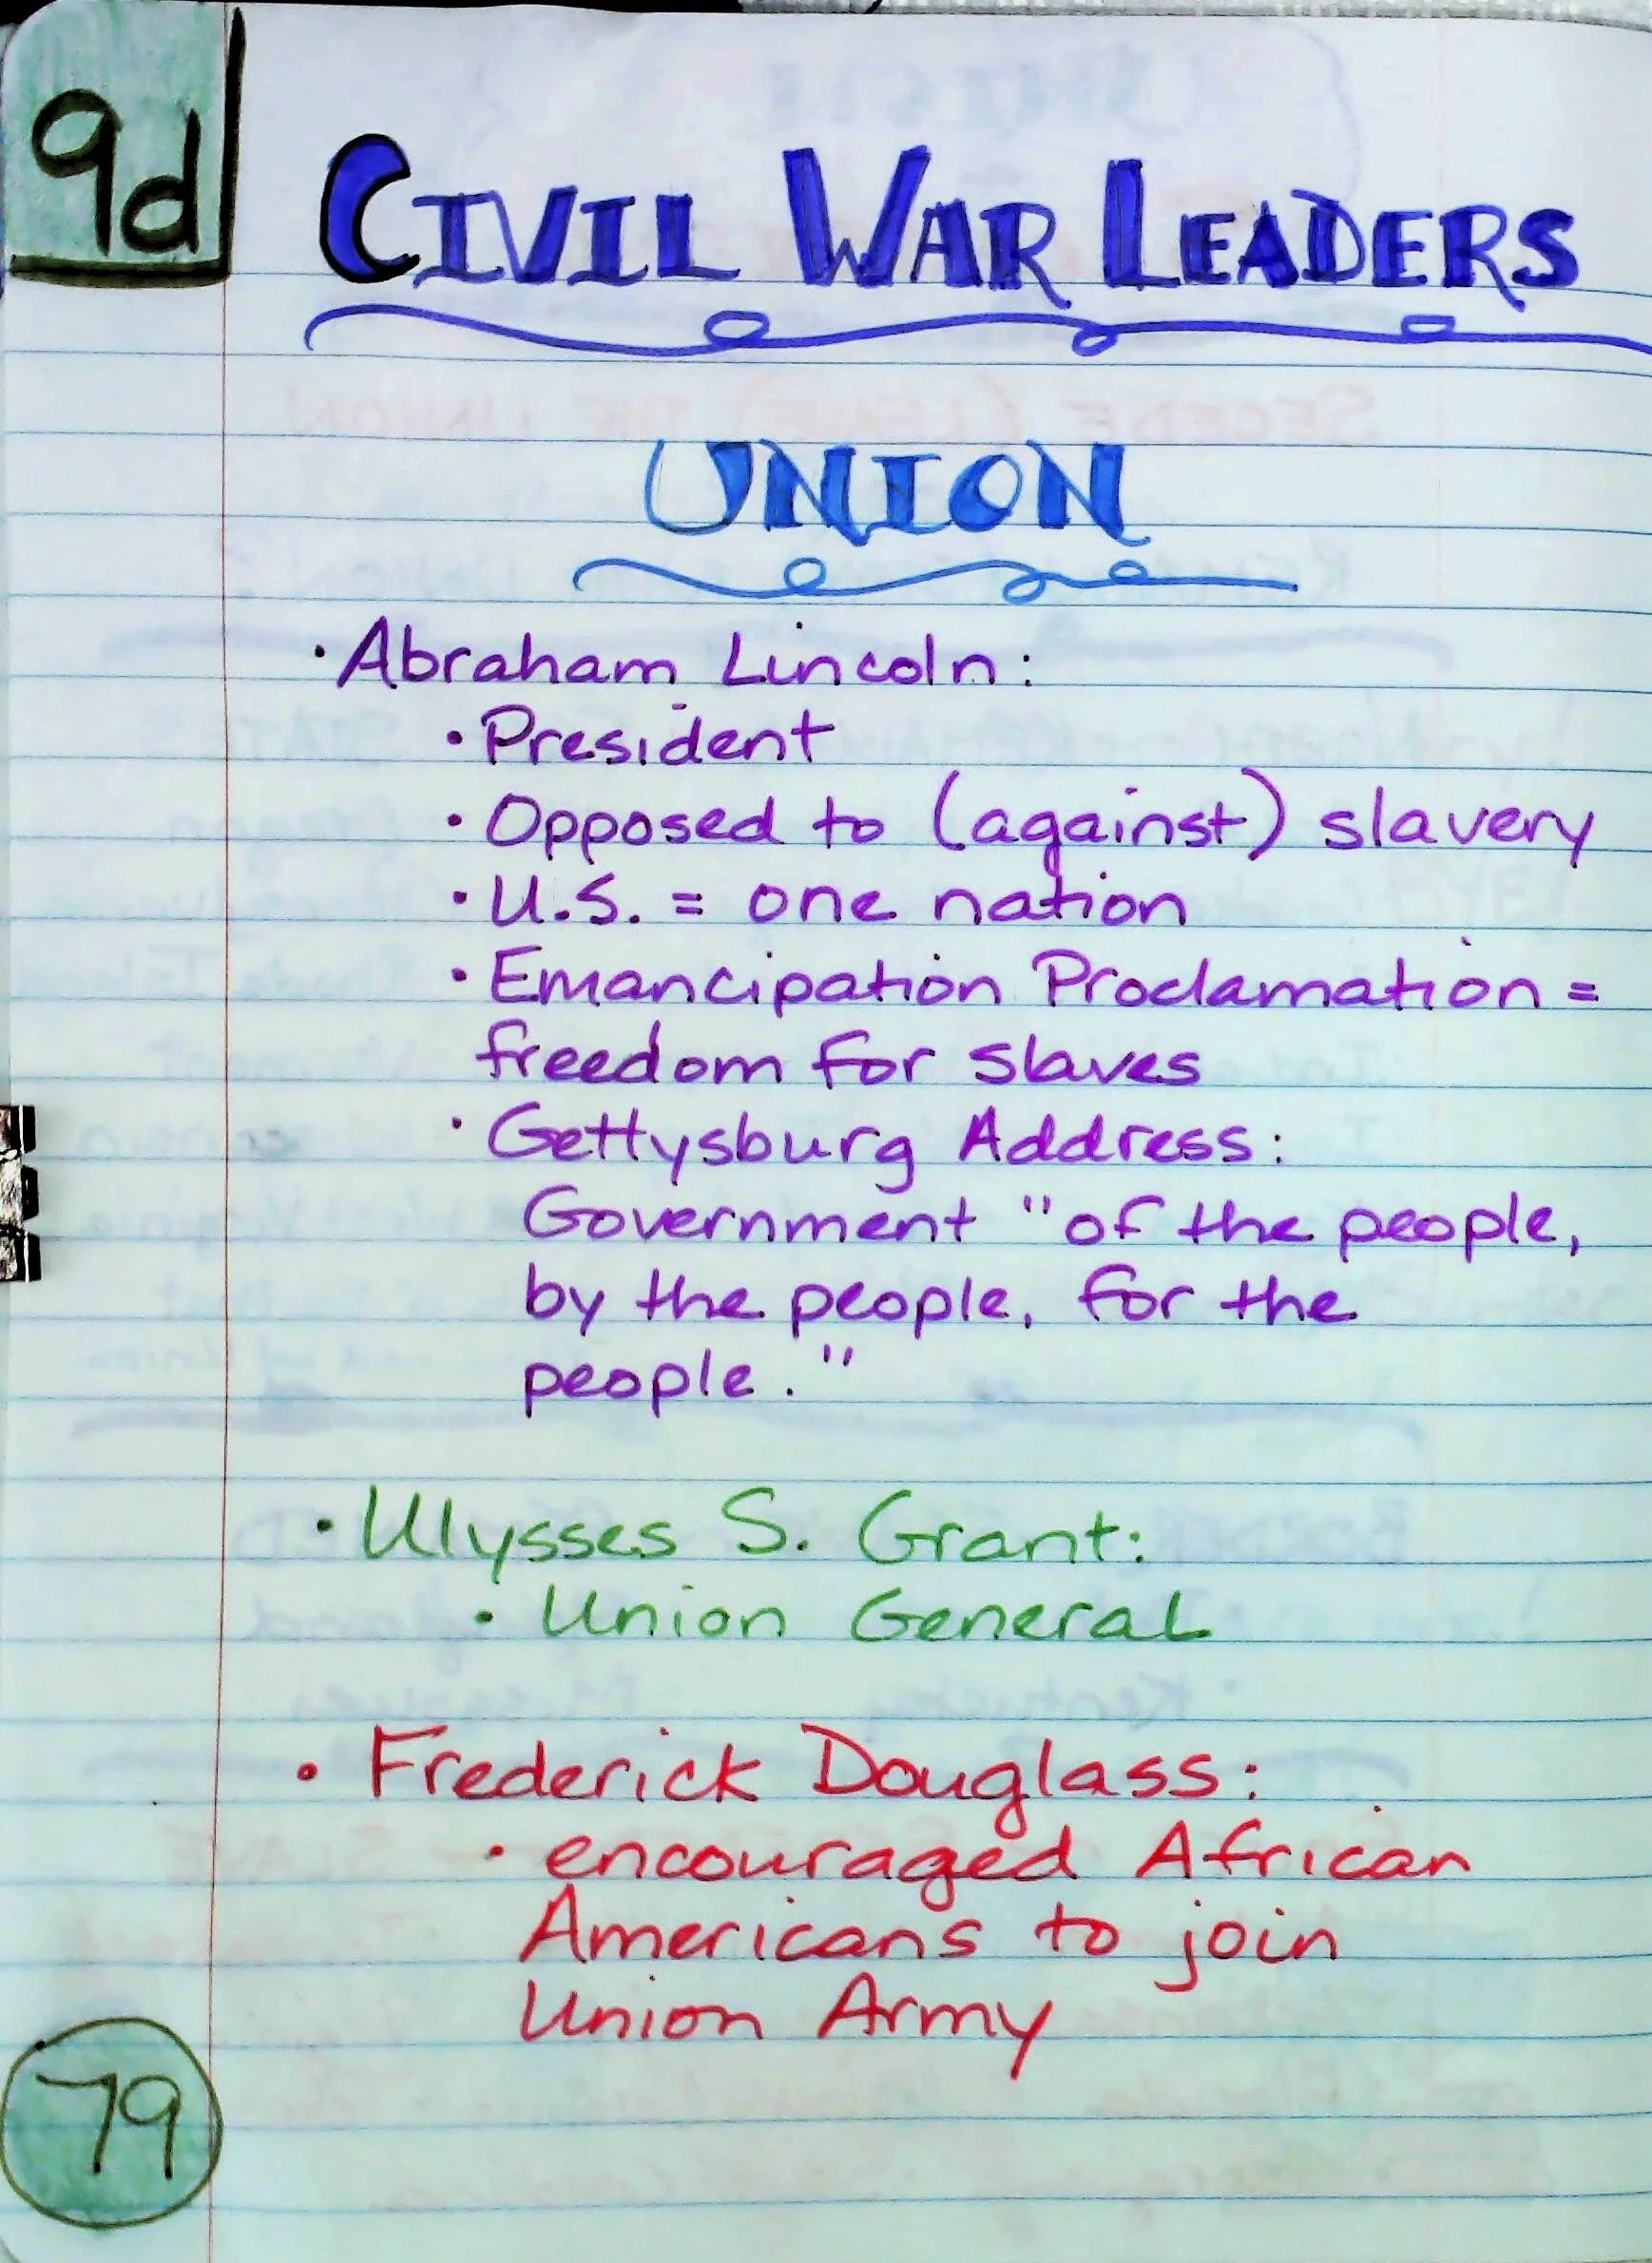 9d
CIVIL WAR LEADERS
UNION
· Abraham Lincoln:
· President
· Opposed to (against) slavery
· U.S. = one nation
· Emancipation Proclamation =
freedom for slaves
· Gettysburg Address:
Government "of the people,
by the people, for the
people."
· Ulysses S. Grant:
· Union General
· Frederick Douglass:
· encouraged African
Americans to join
Union Army
79